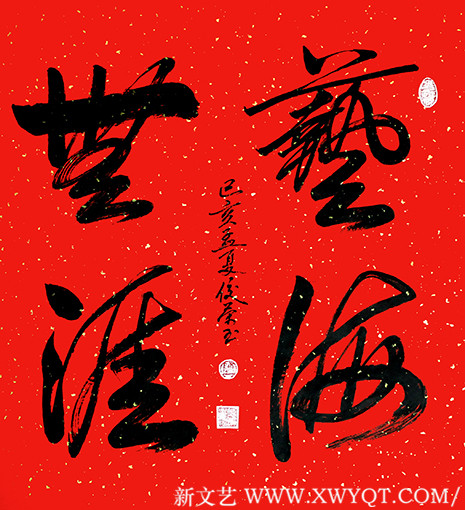 藝海
無涯
己亥孟夏俊榮书
新文艺 WWW.XWYQT.COM/